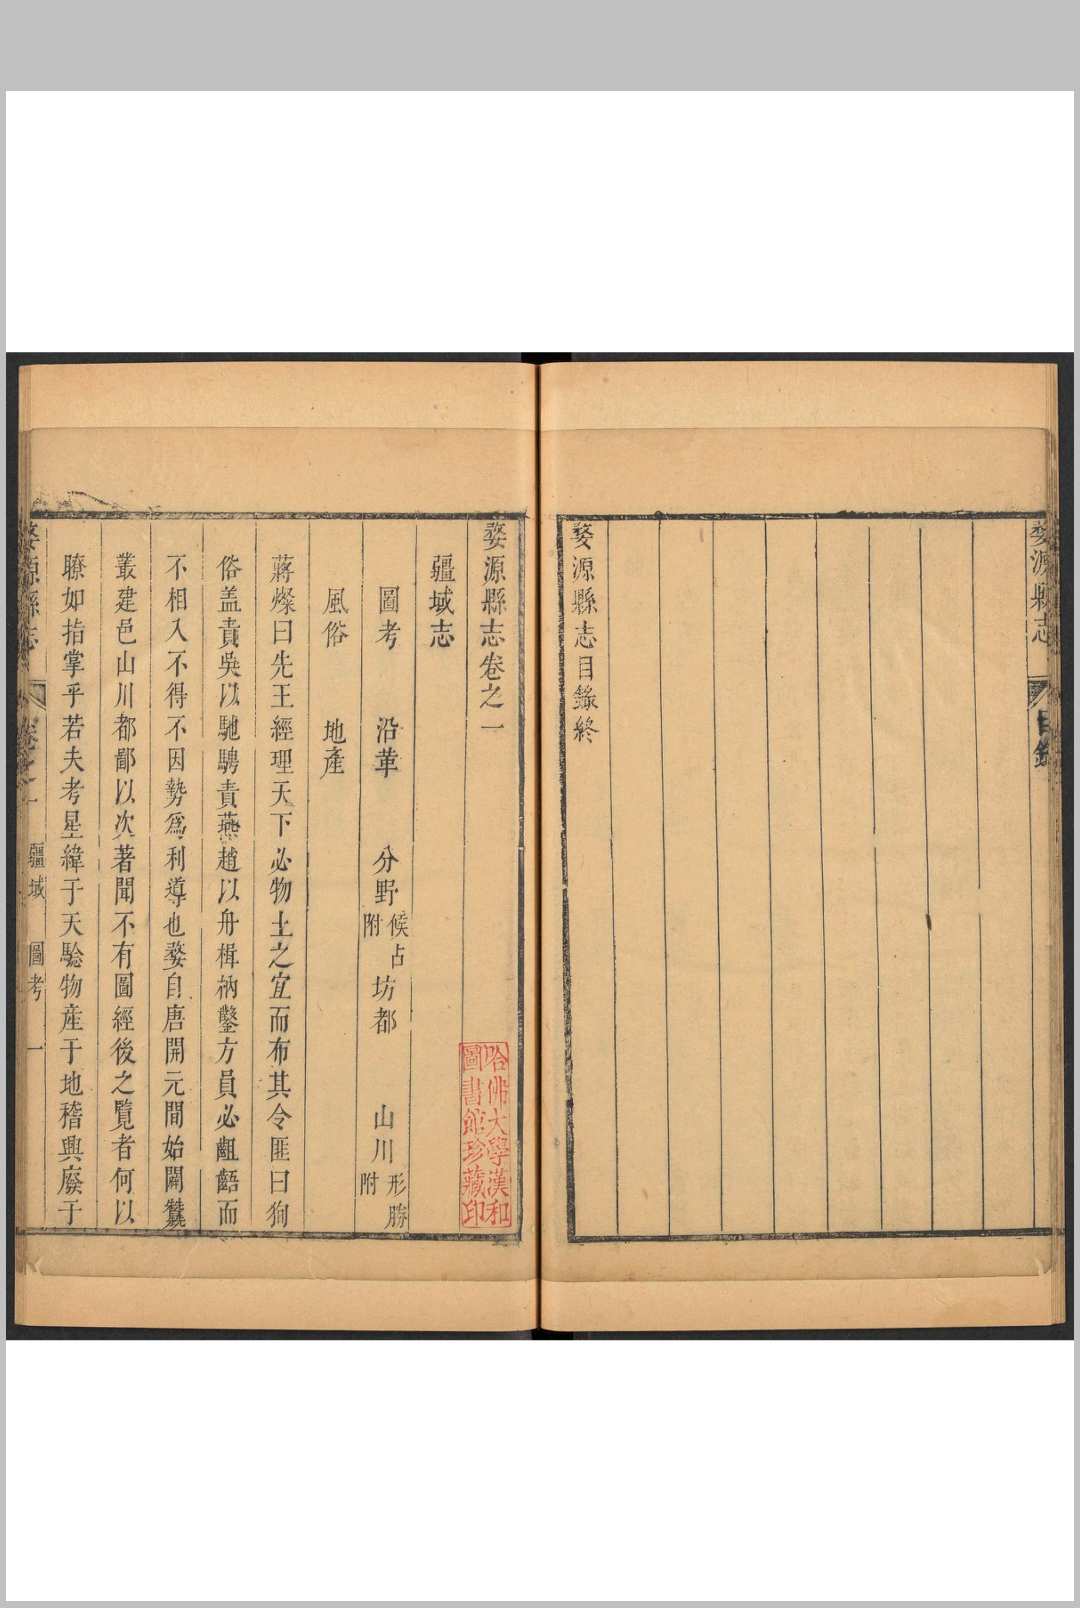 婺源縣志
目錄
婺源縣志目錄終
婺源縣志卷之一
疆域志
圖考　沿革　分野候占附　坊都　山川形勝附
風俗　地產
蔣燦曰先王經理天下必物土之宜而布其令匪曰狥
俗盖責吳以馳騁責燕趙以舟楫枘鑿方員必齟齬而
不相入不得不因勢爲利導也婺自唐開元間始闢蠶
叢建邑山川都鄙以次著聞不有圖經後之覽者何以
瞭如指掌乎若夫考星緯于天驗物産于地稽興廢于
婺源縣志
卷之一
疆域　圖考
一
哈佛大學漢和
圖書館珍藏印